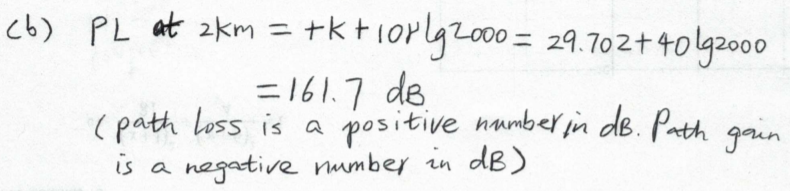 (b) PL at 2km = +K+10γlg2000 = 29.702+40lg2000
=161.7 dB
(path loss is a positive number in dB. Path gain
is a negative number in dB)